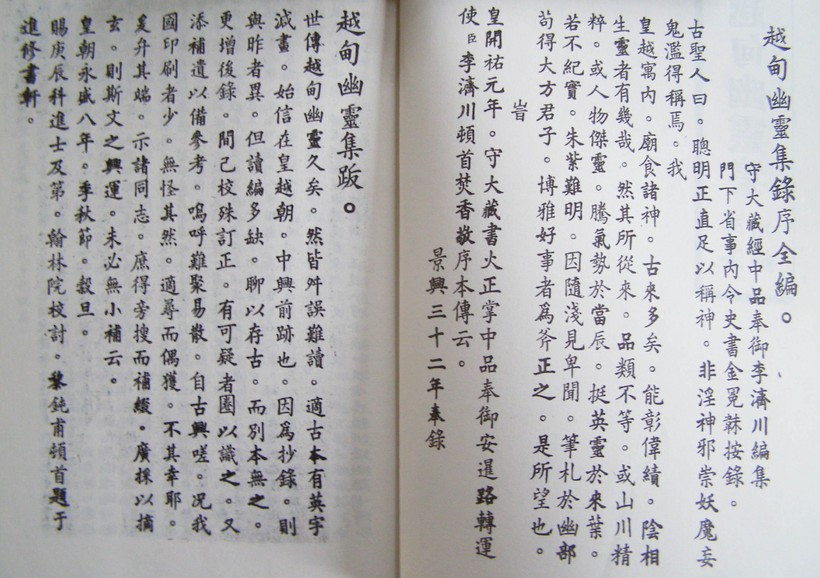 越甸幽靈集錄序全編。
守大藏經中品奉御李濟川編集
門下省事內令史書金冕錄按錄。
古聖人曰。聰明正直足以稱神。非淫神邪崇妖魔妄
鬼濫得稱焉。我
皇越寓內。廟食諸神。古來多矣。能彰偉績。陰相
生靈者有幾哉。然其所從來。品類不等。或山川精
粹。或人物傑靈。騰氣勢於當辰。挺英靈於來葉。
若不紀實。朱紫難明。因隨淺見卑聞。筆札於幽部
苟得大方君子。博雅好事者為斧正之。是所望也。
旹
皇開祐元年。守大藏書火正掌中品奉御安暹路轉運
使臣李濟川頓首焚香敬序本傳云。
景興三十二年奉錄
越甸幽靈集跋。
世傳越甸幽靈久矣。然皆舛誤難讀。適古本有英字
減畫。始信在皇越朝。中興前跡也。因為抄錄。則
與昨者異。但讀編多缺。聊以存古。而別本無之。
更增後錄。間己校殊訂正。有可疑者圈以識之。又
添補遺以備參考。嗚呼難聚易散。自古興嗟。況我
國印刷者少。無怪其然。適尋而偶獲。不其幸耶。
爰升其端。示諸同志。庶得旁搜而補綴。廣採以摘
玄。則斯文之興運。未必無小補云。
皇朝永盛八年。季秋節。穀旦。
賜庚辰科進士及第。翰林院校討。黎鈍甫頓首題于
進修書軒。